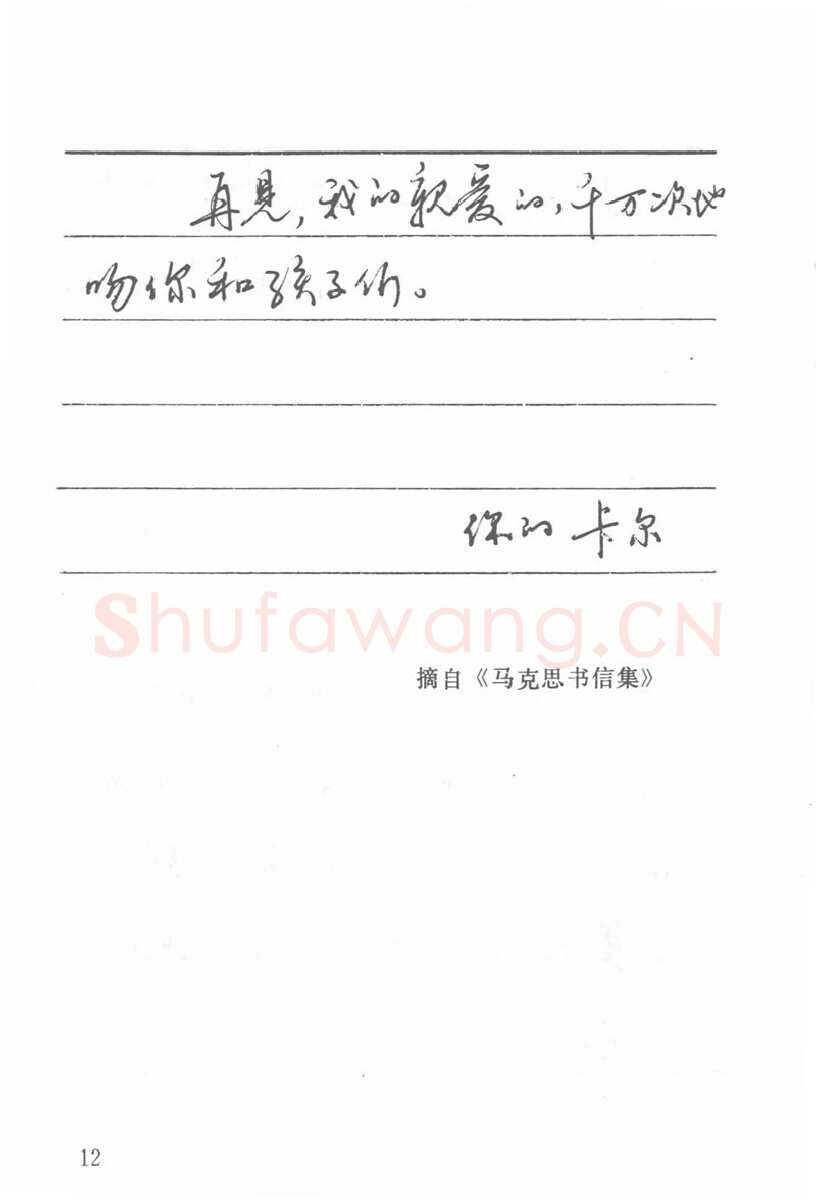 再見,我的親爱的,千万次地
吻你和孩子们。
你的 卡尔
Shufawang.CN
摘自《马克思书信集》
12